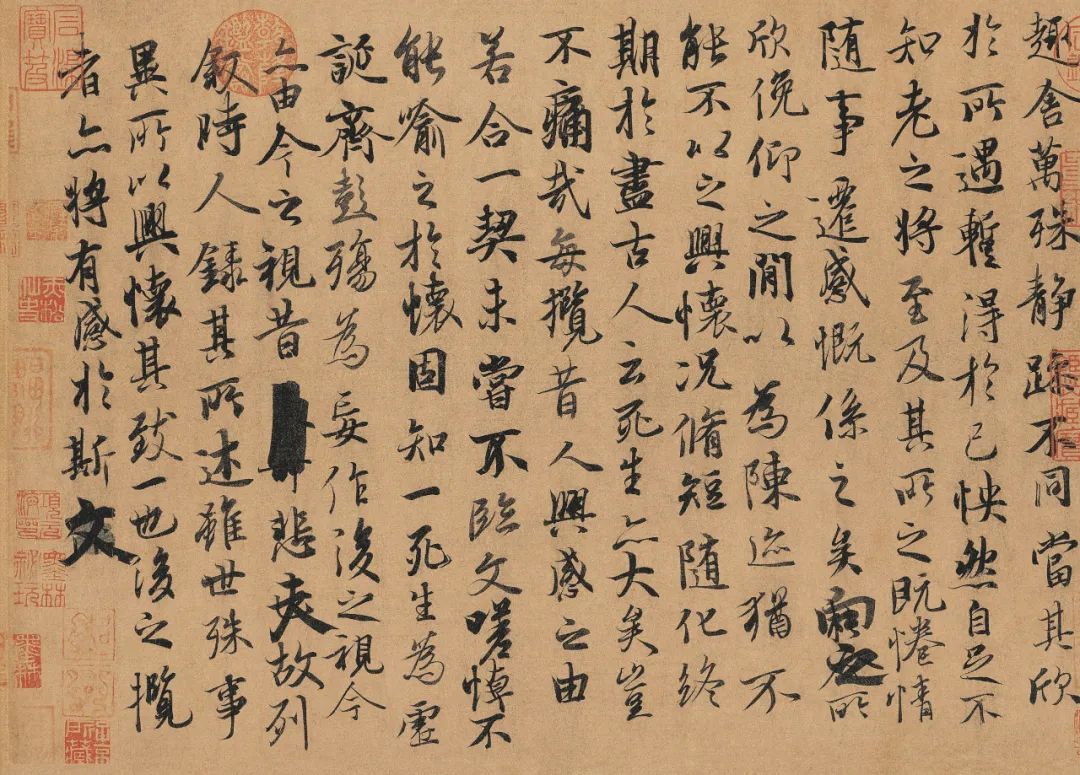 趣舍萬殊静躁不同當其欣
於所遇蹔得於己怏然自足不
知老之將至及其所之既惓情
随事遷感慨係之矣向之所
欣俛仰之閒以為陳迹猶不
能不以之興懷況脩短随化終
期於盡古人云死生亦大矣豈
不痛哉每攬昔人興感之由
若合一契未嘗不臨文嗟悼不
能喻之於懷固知一死生為虛
誕齊彭殤為妄作後之視今
亦由今之視昔悲夫故列
敘時人錄其所述雖世殊事
異所以興懷其致一也後之攬
者亦將有感於斯文